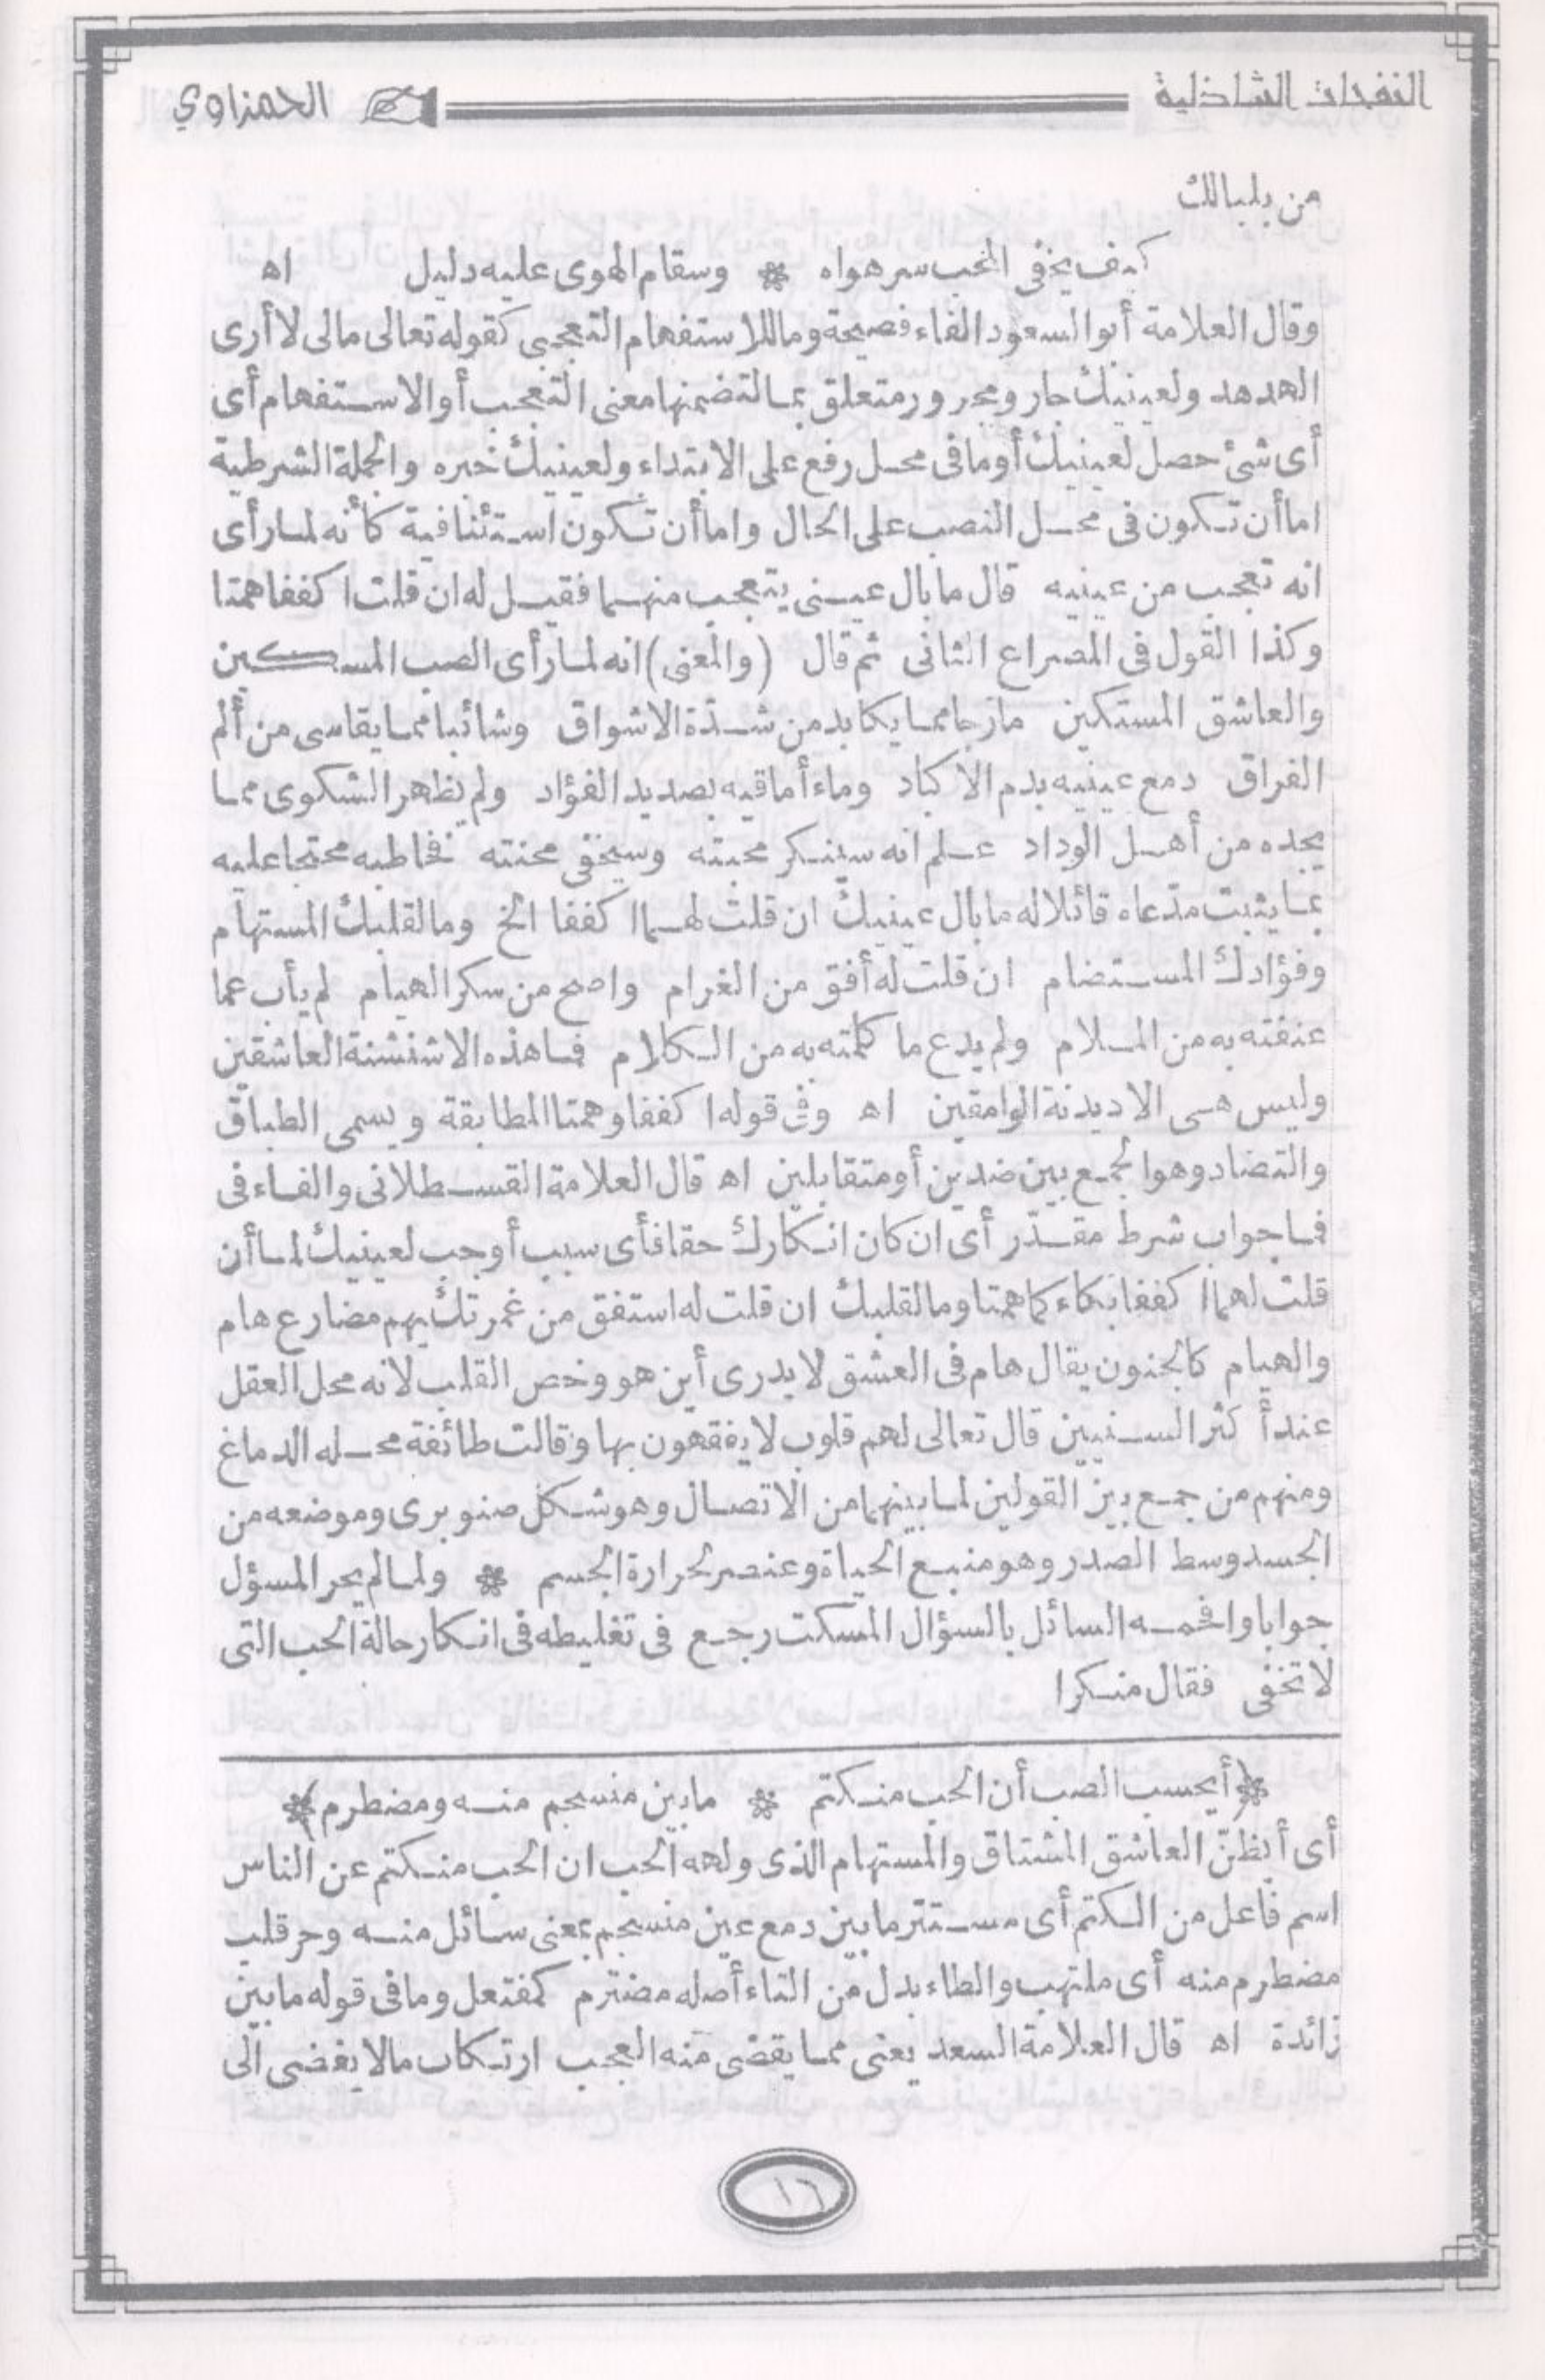 النفحات الشاذلية الحمزاوي
من بلبالك
كيف يخفى المحب سر هواه * وسقام الهوى عليه دليل اه
وقال العلامة أبو السعود الفاء فصيحة وما للاستفهام التعجبى كقوله تعالى مالى لا أرى
الهدهد ولعينيك جار ومجرور متعلق بما لتضمنها معنى التعجب أو الاستفهام أى
أى شئ حصل لعينيك أو ما فى محل رفع على الابتداء ولعينيك خبره والجملة الشرطية
اما أن تكون فى محل النصب على الحال واما أن تكون استئنافية كأنه لما رأى
انه تعجب من عينيه قال ما بال عينى يتعجب منهما فقيل له ان قلت اكففا همتا
وكذا القول فى المصراع الثانى ثم قال (والمعنى) انه لما رأى الصب المسكين
والعاشق المستكين مازجا مما يكابد من شدّة الاشواق وشائبا مما يقاسى من ألم
الفراق دمع عينيه بدم الاكباد وماء أماقيه بصديد الفؤاد ولم يظهر الشكوى مما
يجده من أهل الوداد علم انه سينكر محبته وسيخفى محنته فخاطبه محتجا عليه
بما يثبت مدّعاه قائلا له ما بال عينيك ان قلت لهما اكففا الخ وما لقلبك المستهام
وفؤادك المستضام ان قلت له أفق من الغرام واصح من سكر الهيام لم يأب عما
عنفته به من الملام ولم يدع ما كلمته به من الكلام فما هذه الا شنشنة العاشقين
وليس هى الا ديدنة الوامقين اه وفى قوله اكففا وهمتا المطابقة ويسمى الطباق
والتضاد وهو الجمع بين ضدين أو متقابلين اه قال العلامة القسطلانى والفاء فى
فما جواب شرط مقدّر أى ان كان انكارك حقا فأى سبب أوجب لعينيك لما أن
قلت لهما اكففا بكاء كما همتا وما لقلبك ان قلت له استفق من غمرتك يهم مضارع هام
والهيام كالجنون يقال هام فى العشق لا يدرى أين هو وخص القلب لانه محل العقل
عند أكثر السنيين قال تعالى لهم قلوب لا يفقهون بها وقالت طائفة محله الدماغ
ومنهم من جمع بين القولين لما بينهما من الاتصال وهو شكل صنوبرى وموضعه من
الجسد وسط الصدر وهو منبع الحياة وعنصر لحرارة الجسم * ولما لم يحر المسؤل
جوابا وافحمه السائل بالسؤال المسكت رجع فى تغليطه فى انكار حالة الحب التى
لا تخفى فقال منكرا
*(أيحسب الصب أن الحب منكتم * ما بين منسجم منه ومضطرم)*
أى أيظنّ العاشق المشتاق والمستهام الذى ولهه الحب ان الحب منكتم عن الناس
اسم فاعل من الكتم أى مستتر ما بين دمع عين منسجم بمعنى سائل منه وحر قلب
مضطرم منه أى ملتهب والطاء بدل من التاء أصله مضترم كمفتعل وما فى قوله ما بين
زائدة اه قال العلامة السعد يعنى مما يقضى منه العجب ارتكاب ما لا يفضى الى
١٦